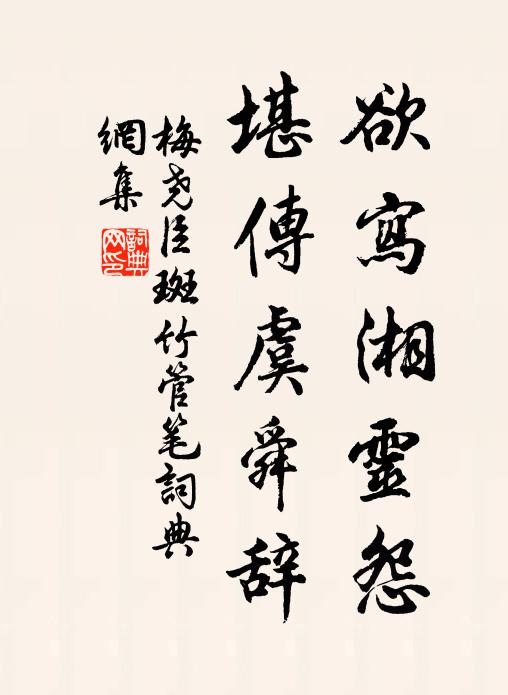 欲寫湘靈怨
堪傳虞舜辞
梅尧臣斑竹管笔詞典
網集
詞典
网印